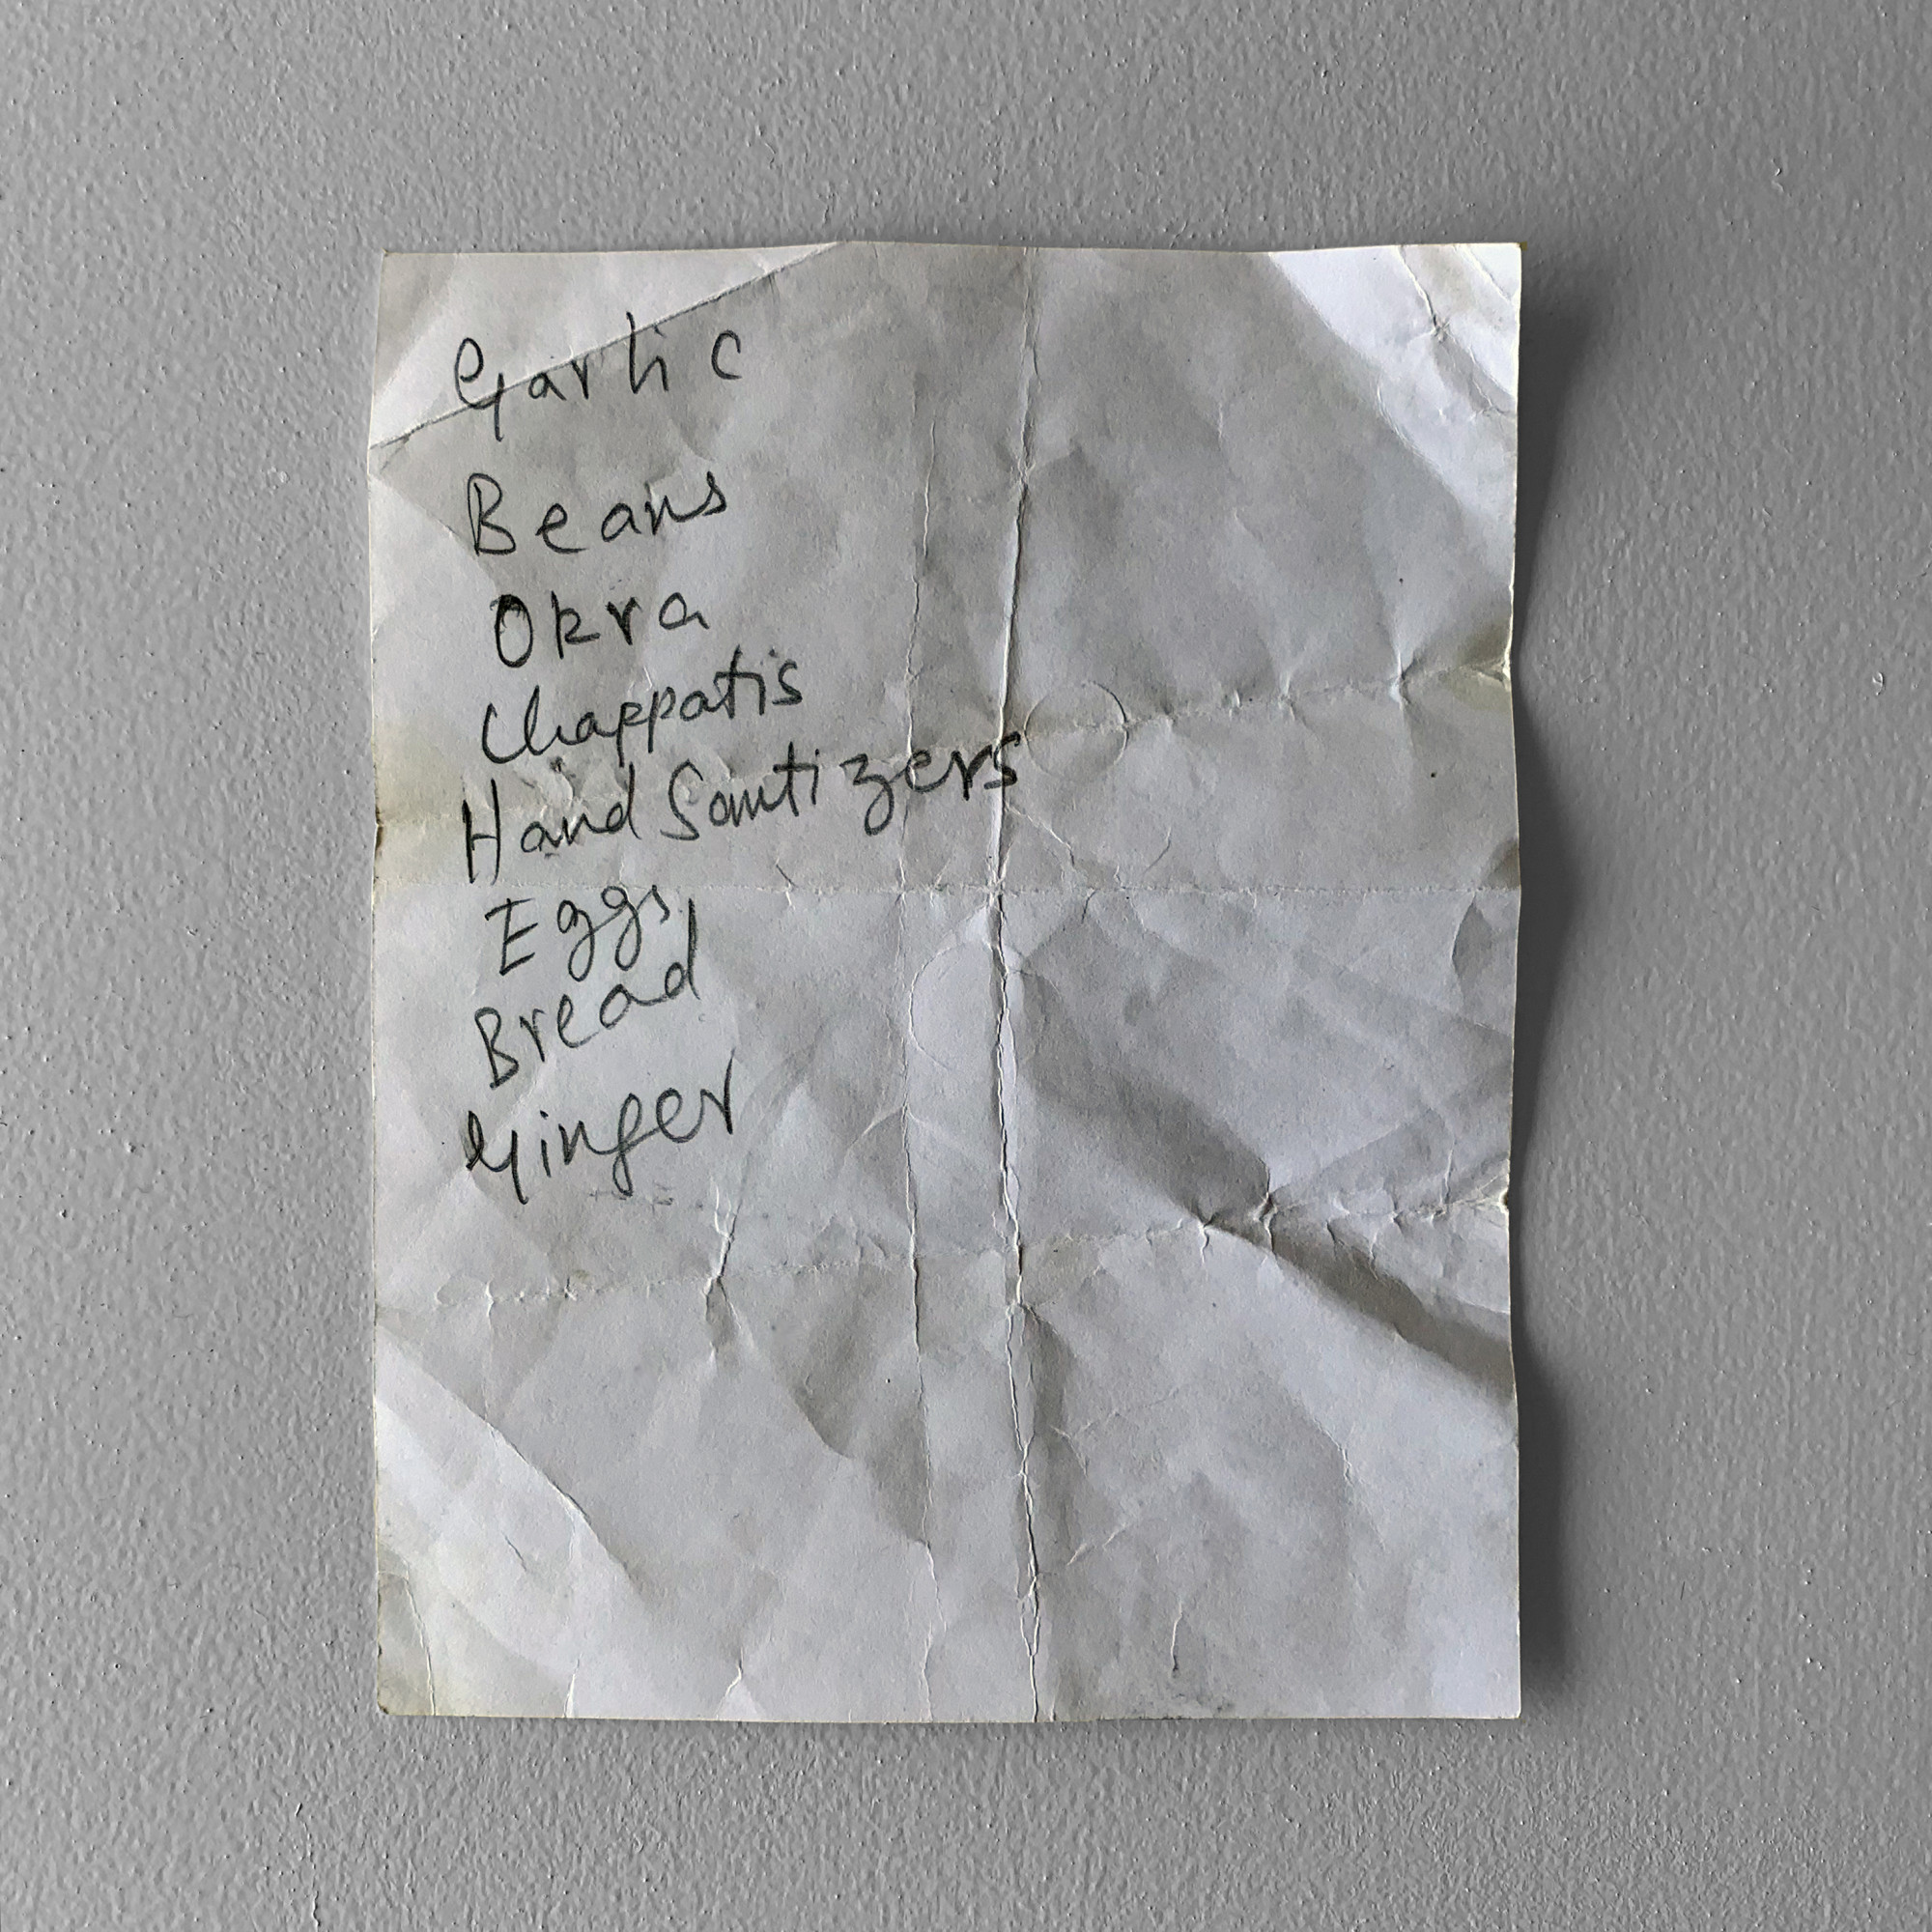 Garlic
Beans
Okra
Chappatis
Hand Santizers
Eggs
Bread
Ginger